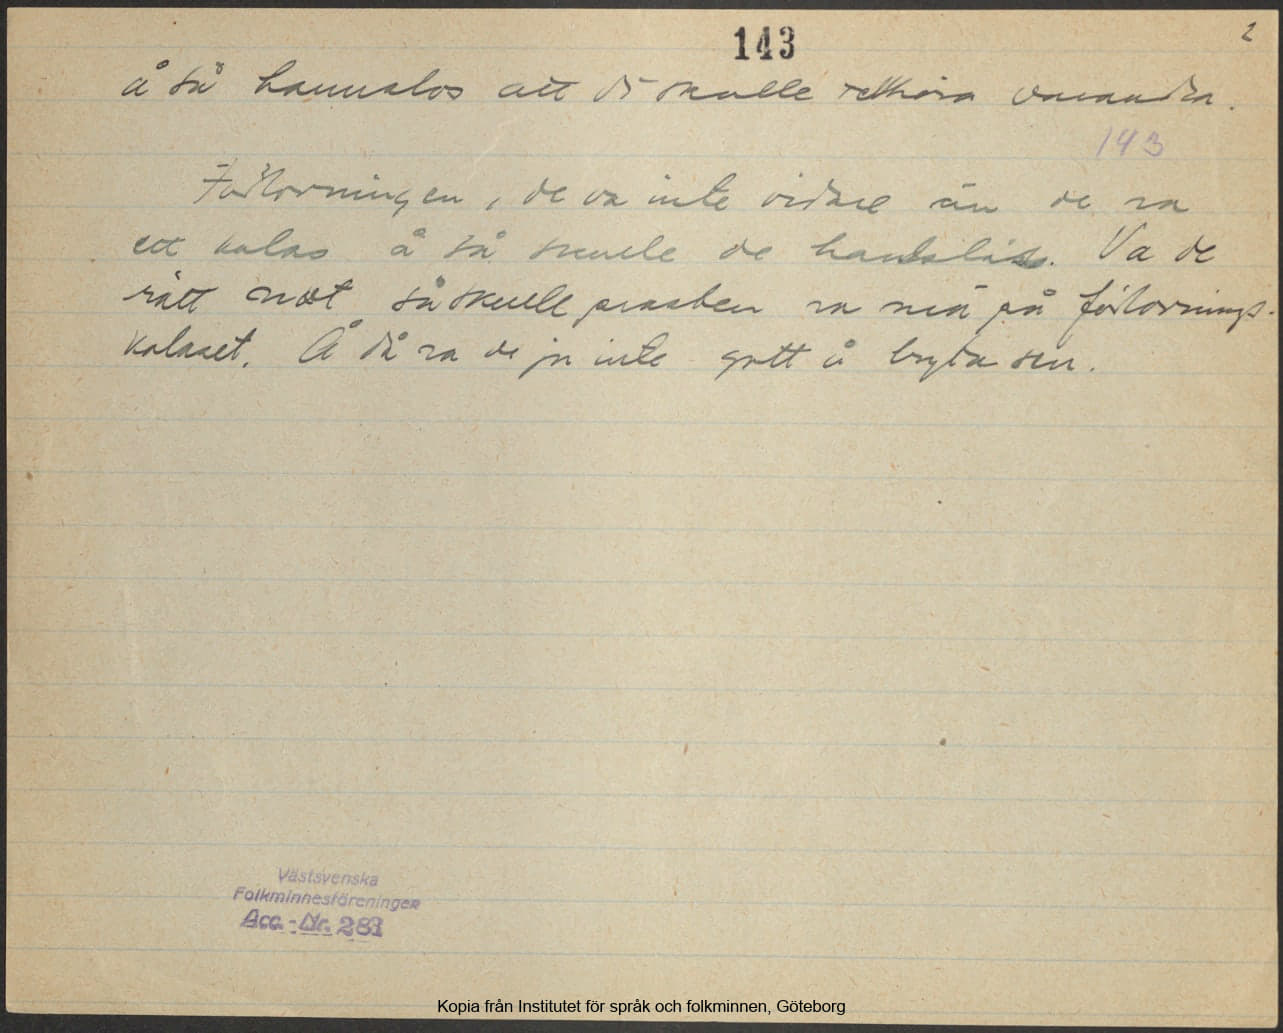 143
2
å så hannslos att di skulle tellhöra varandra.
143
Förlovningen, de va inte vidare än de va
ett kalas å så skulle de handslås. Va de
rätt noet så skulle prästen va mä på förlovnings-
kalaset. Å då va de ju inte gott å bryta sen.
Västsvenska
Folkminnesföreningen
Acc.-Nr. 283
Kopia från Institutet för språk och folkminnen, Göteborg